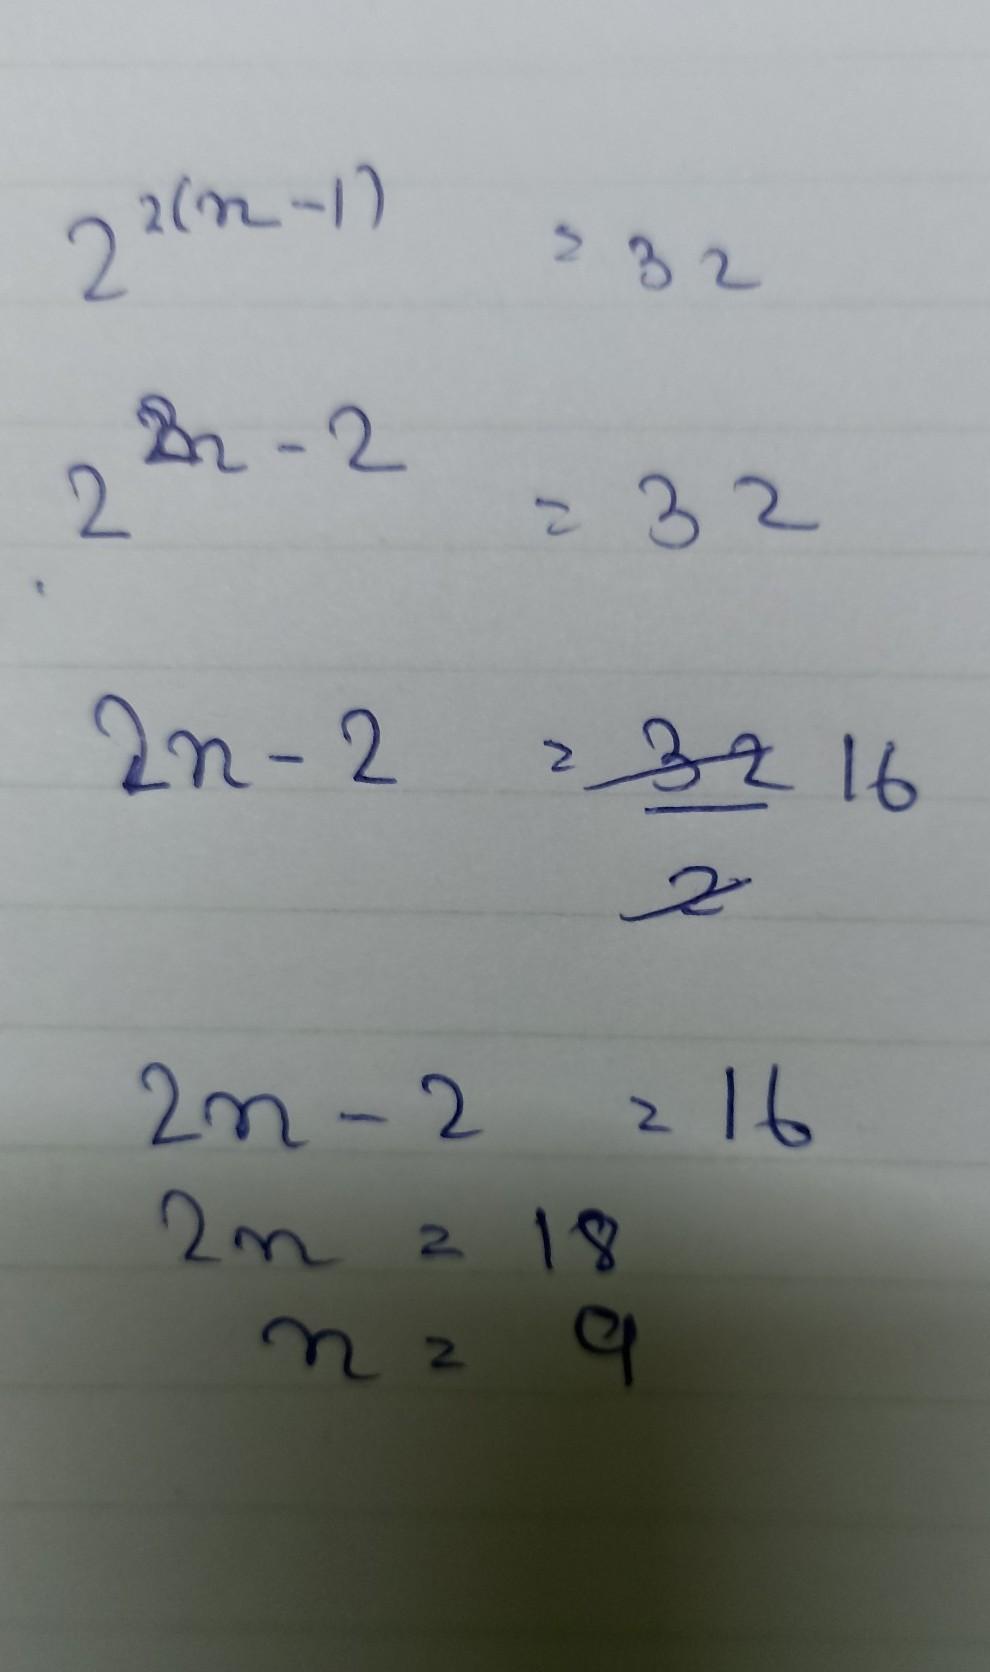 2^{2(n-1)} = 32
2^{2n-2} = 32
2n-2 = 32/2 16
2n-2 = 16
2n = 18
n = 9